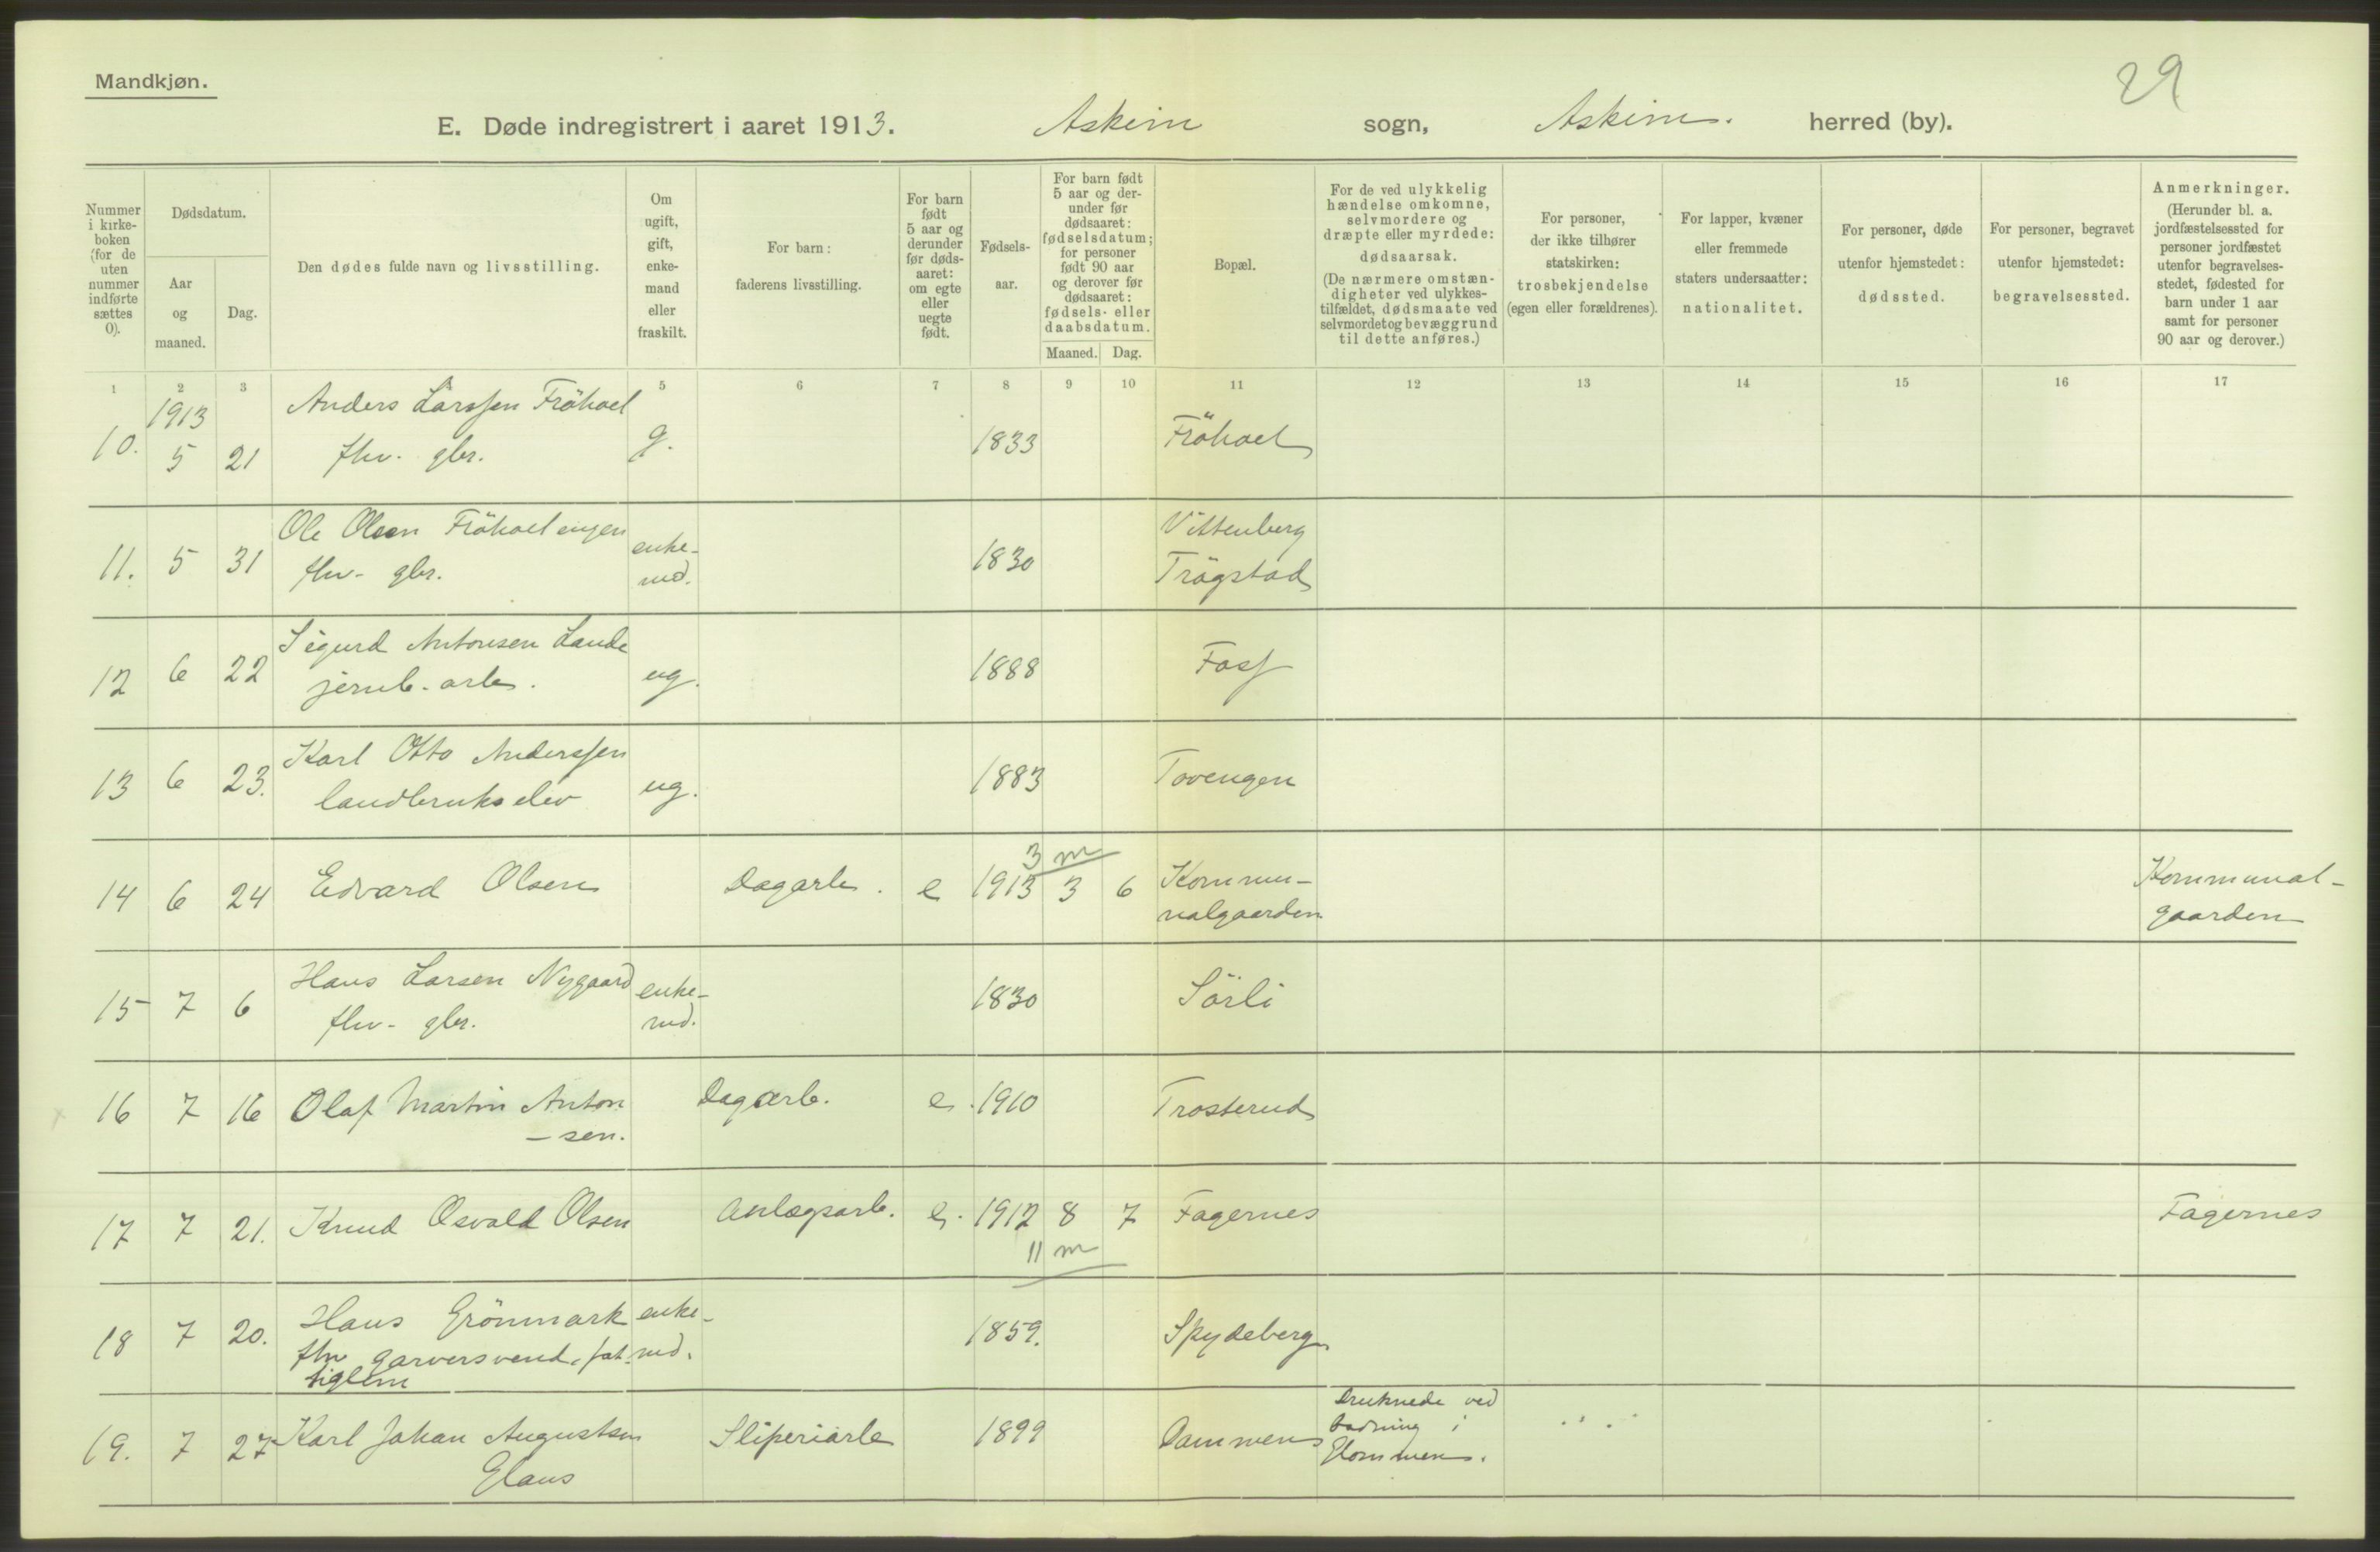 Mandkjøn.
29
E. Døde indregistrert i aaret 1913. Askim sogn, Askim. herred (by).
Nummer i kirke-boken (for de uten nummer indførte sættes 0).
Dødsdatum.
Aar og maaned.
Dag.
Den dødes fulde navn og livsstilling.
Om ugift, gift, enke-mand eller fraskilt.
For barn: faderens livsstilling.
For barn født 5 aar og derunder før døds-aaret: om egte eller uegte født.
Fødsels-aar.
For barn født 5 aar og der-under før dødsaaret: fødselsdatum; for personer født 90 aar og derover før dødsaaret: fødsels- eller daabsdatum.
Maaned. Dag.
Bopæl.
For de ved ulykkelig hændelse omkomne, selvmordere og dræpte eller myrdede: dødsaarsak. (De nærmere omstæn-digheter ved ulykkes-tilfældet, dødsmaate ved selvmord et og bevæggrund til dette anføres.)
For personer, der ikke tilhører statskirken: trosbekjendelse (egen eller forældrenes).
For lapper, kvæner eller fremmede staters undersaatter: nationalitet.
For personer, døde utenfor hjemstedet: dødssted.
For personer, begravet utenfor hjemstedet: begravelsessted.
Anmerkninger. (Herunder bl. a. jordfæstelsessted for personer jordfæstet utenfor begravelses-stedet, fødested for barn under 1 aar samt for personer 90 aar og derover.)
1 2 3 5 6 7 8 9 10 11 12 13 14 15 16 17
1913
10. 5 21 Anders Larssen Fröhoel g. 1833 Fröhoel
fhv. gbr.
11. 5 31 Ole Olsen Fröhoelengen enke- 1830 Vittenberg
fhv- gbr. md. Trögstad
12 6 22 Sigurd Antonsen Lande ug. 1888 Foss
jernb. arb.
13 6 23. Karl Otto Anderssen ug. 1883 Tovengen
landbrukselev
3 m
14 6 24 Edvard Olsen Dagarb. e 1913 3 6 Kommu- Kommunal-
nalgaarden gaarden
15 7 6 Hans Larsen Nygaard enke- 1830 Sörli
fhv- gbr. md.
16 7 16 Olaf Martin Anton Dagarb. e. 1910 Trosterud
- sen.
17 7 21. Knud Osvald Olsen Anlægsarb. e. 1912 8 7 Fagernes Fagernes
11 m
18 7 20. Hans Grönmark enke- 1859. Spydeberg
fhv garversvend, fat- md.
tiglem
19. 7 27 Karl Johan Augustsen Sliperiarb 1899 Dammen Druknede ved
Glaus badning i
Glommen.